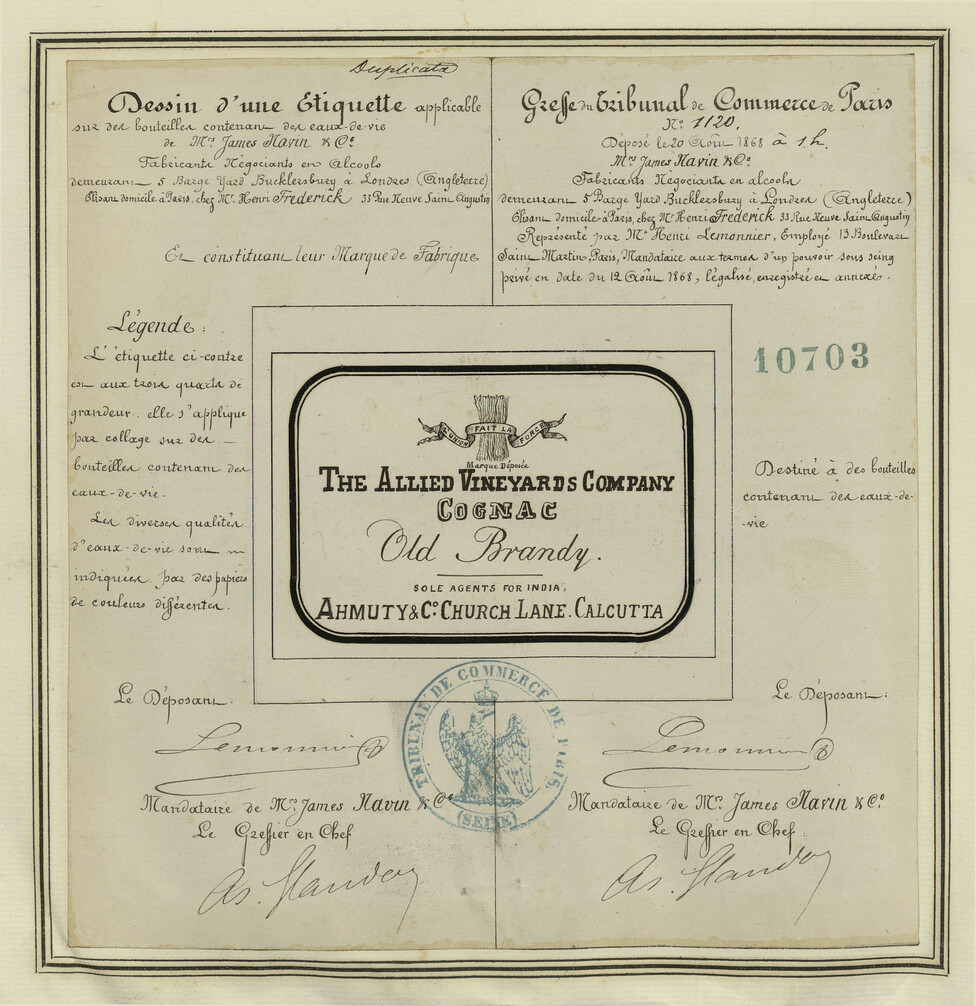 Duplicata
Dessin d'une Etiquette applicable
sur des bouteilles contenant des eaux-de-vie
de Mrs James Navin & Co
Fabricants Négociants en Alcools
demeurant 5 Barge Yard Bucklersbury à Londres (Angleterre)
Elisant domicile à Paris, chez Mr. Henri Frederick 33 Rue Neuve Saint Augustin
En constituant leur Marque de Fabrique
Greffe du Tribunal de Commerce de Paris
No. 1120.
Déposé le 20 Août 1868 à 1h.
Mrs James Navin & Co.
Fabricants Négociants en alcools
demeurant 5 Barge Yard Bucklersbury à Londres (Angleterre)
Elisant domicile à Paris, chez Mr Henri Frederick 33 Rue Neuve Saint Augustin
Représenté par Mr Henri Lemonnier, Employé 13 Boulevart
Saint Martin, Paris, Mandataire aux termes d'un pouvoir sous seing
privé en date du 12 Août 1868, légalisé, enregistré et annexé.
Légende:
L'étiquette ci-contre
est aux trois quarts de
grandeur: elle s'applique
par collage sur des
bouteilles contenant des
eaux-de-vie.
Les diverses qualités
d'eaux-de-vie sont
indiquées par des papiers
de couleurs différentes.
L'UNION FAIT LA FORCE
Marque Déposée
THE ALLIED VINEYARDS COMPANY
COGNAC
Old Brandy.
SOLE AGENTS FOR INDIA,
AHMUTY & Co. CHURCH LANE. CALCUTTA
10703
Destiné à des bouteilles
contenant des eaux-de-
-vie
TRIBUNAL DE COMMERCE DE PARIS.
(SEINE)
Le Déposant:
Lemonnier
Mandataire de Mrs James Navin & Co
Le Greffier en Chef
Le Déposant:
Lemonnier
Mandataire de Mrs James Navin & Co.
Le Greffier en Chef